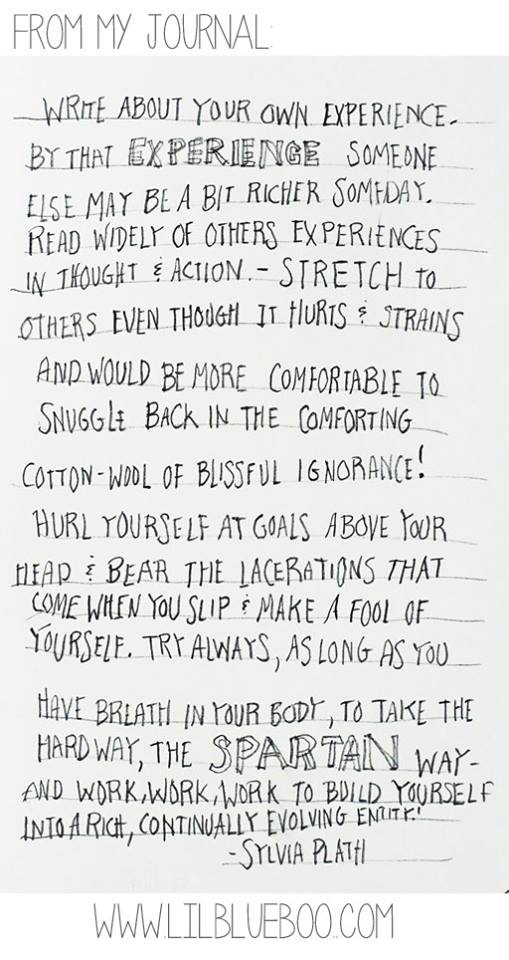 FROM MY JOURNAL:
WRITE ABOUT YOUR OWN EXPERIENCE.
BY THAT EXPERIENCE SOMEONE
ELSE MAY BE A BIT RICHER SOMEDAY.
READ WIDELY OF OTHERS EXPERIENCES
IN THOUGHT & ACTION. - STRETCH TO
OTHERS EVEN THOUGH IT HURTS & STRAINS
AND WOULD BE MORE COMFORTABLE TO
SNUGGLE BACK IN THE COMFORTING
COTTON-WOOL OF BLISSFUL IGNORANCE!
HURL YOURSELF AT GOALS ABOVE YOUR
HEAD & BEAR THE LACERATIONS THAT
COME WHEN YOU SLIP & MAKE A FOOL OF
YOURSELF. TRY ALWAYS, AS LONG AS YOU
HAVE BREATH IN YOUR BODY, TO TAKE THE
HARD WAY, THE SPARTAN WAY-
AND WORK, WORK, WORK TO BUILD YOURSELF
INTO A RICH, CONTINUALLY EVOLVING ENTITY!
-SYLVIA PLATH
WWW.LILBLUEBOO.COM